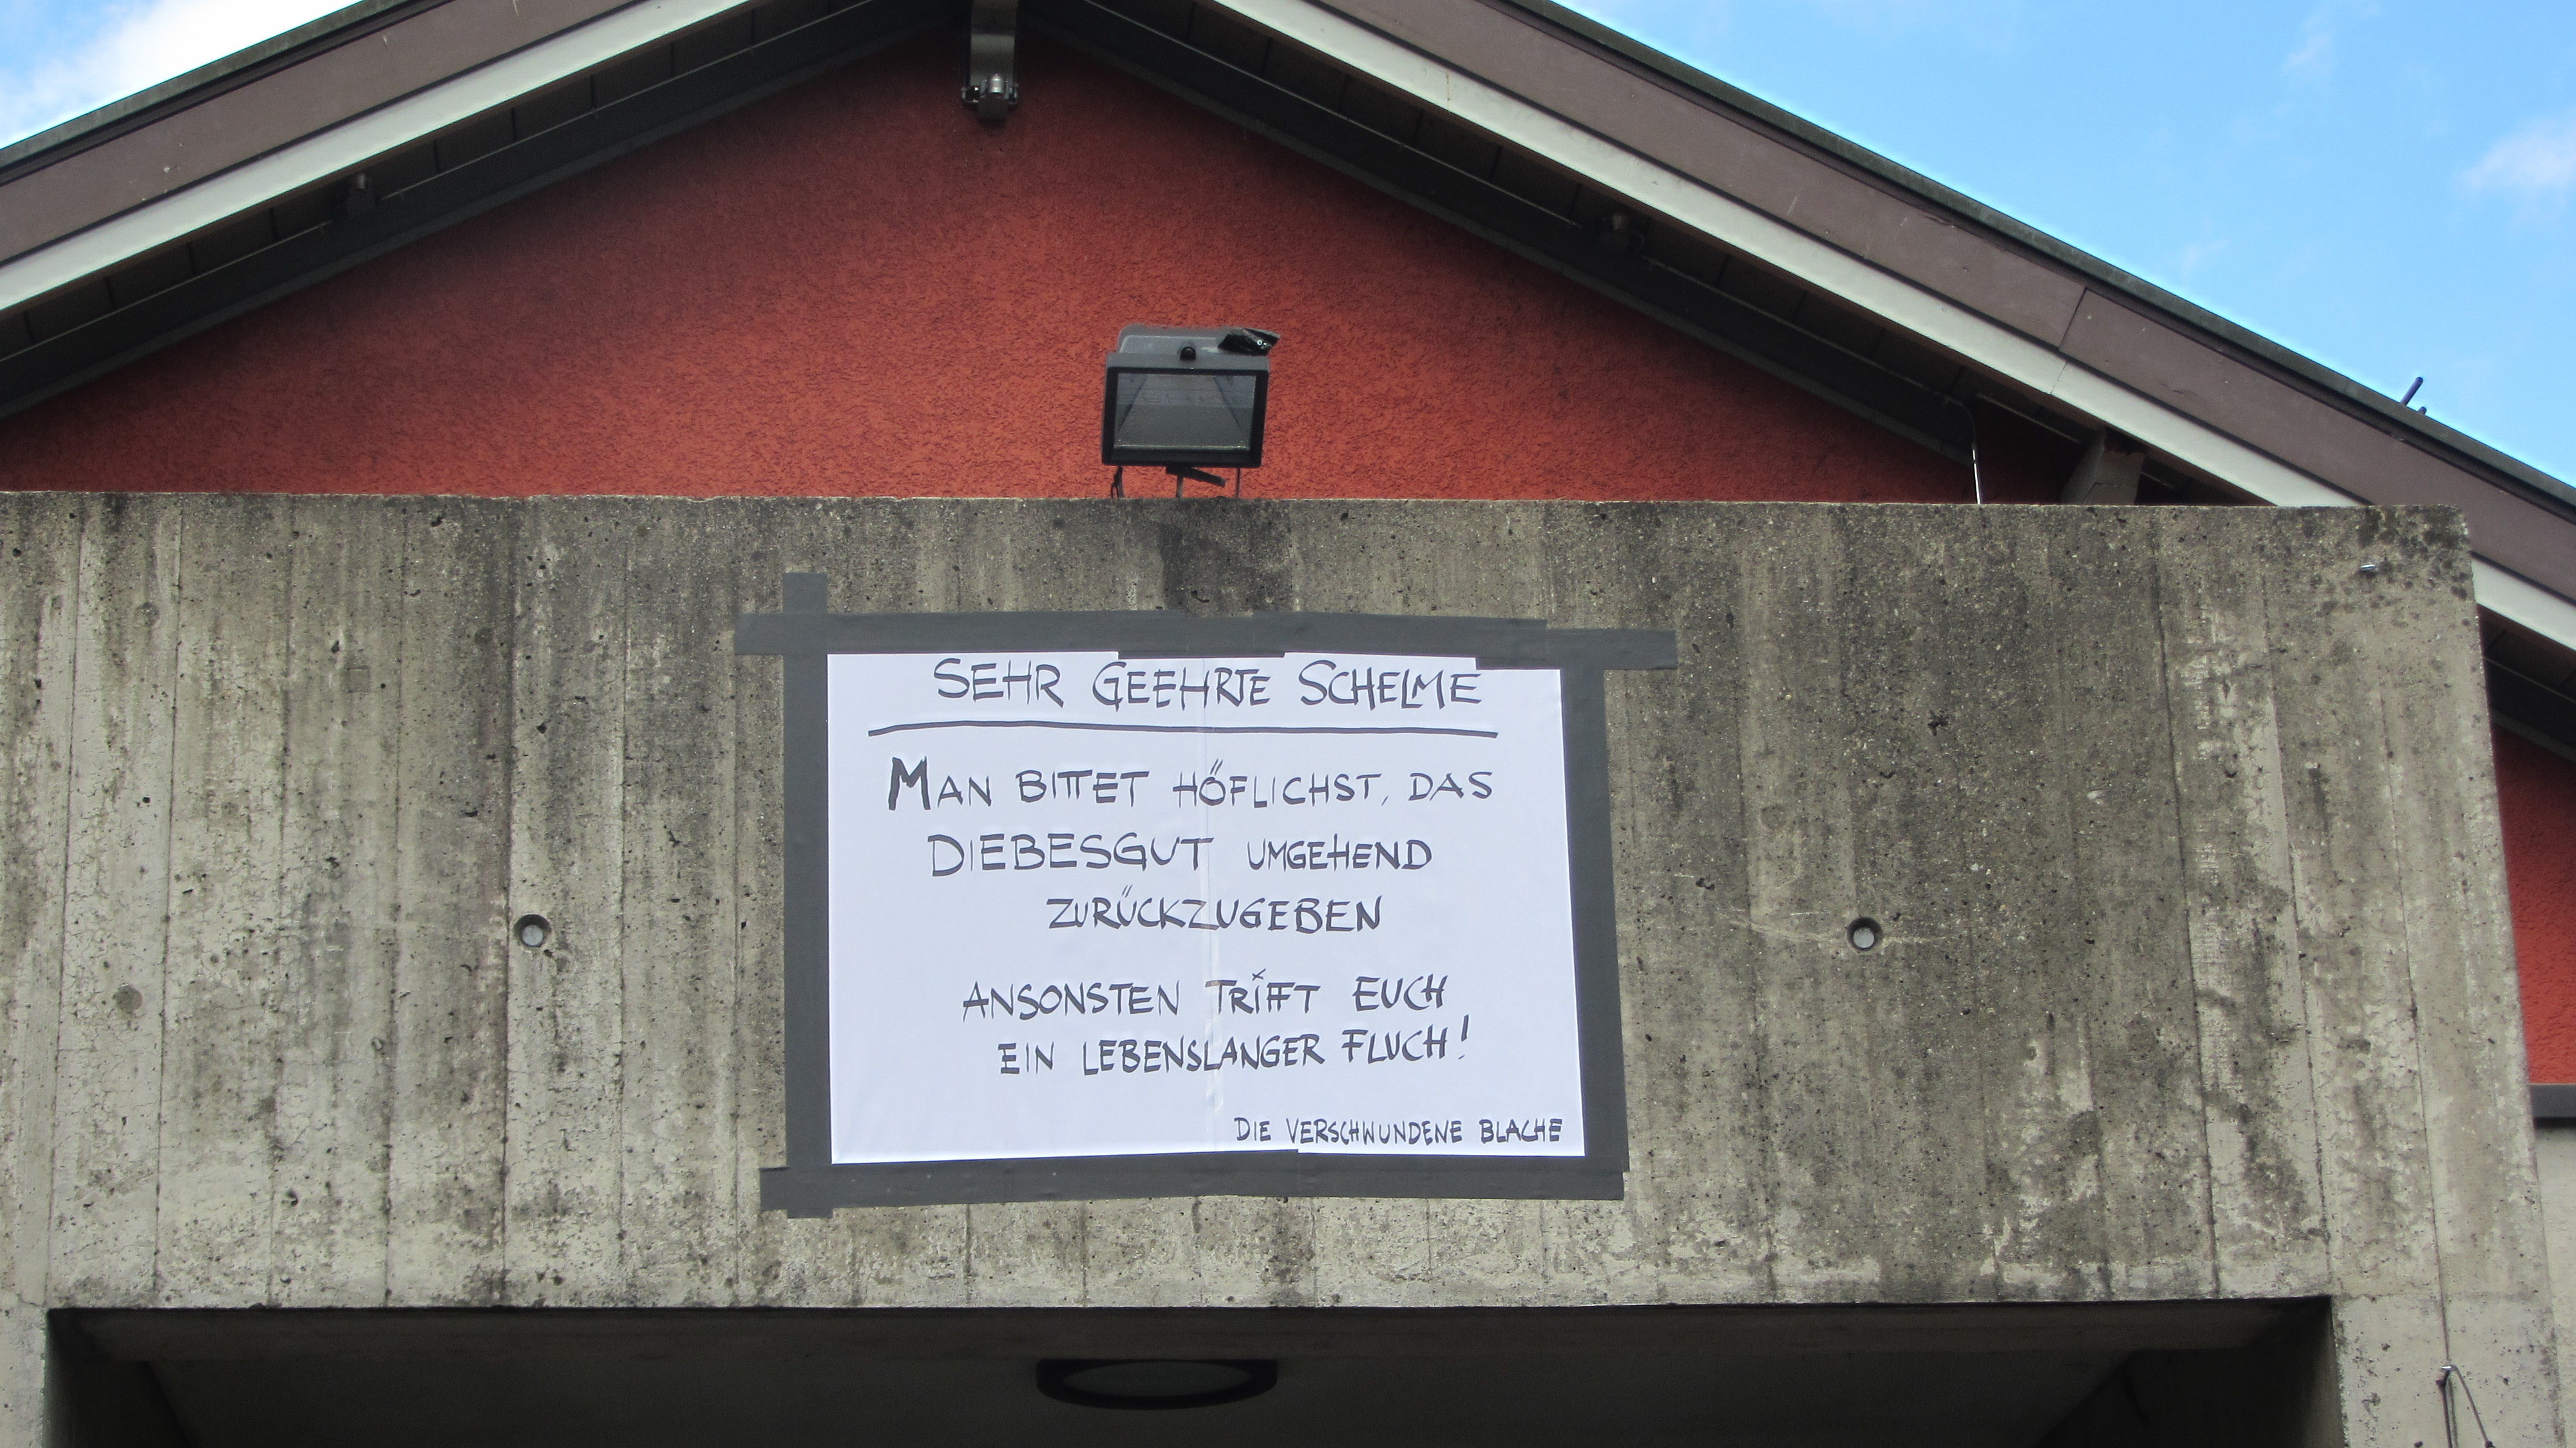 SEHR GEEHRTE SCHELME
MAN BITTET HÖFLICHST, DAS
DIEBESGUT UMGEHEND
ZURÜCKZUGEBEN
ANSONSTEN TRIFFT EUCH
EIN LEBENSLANGER FLUCH!
DIE VERSCHWUNDENE BLACHE